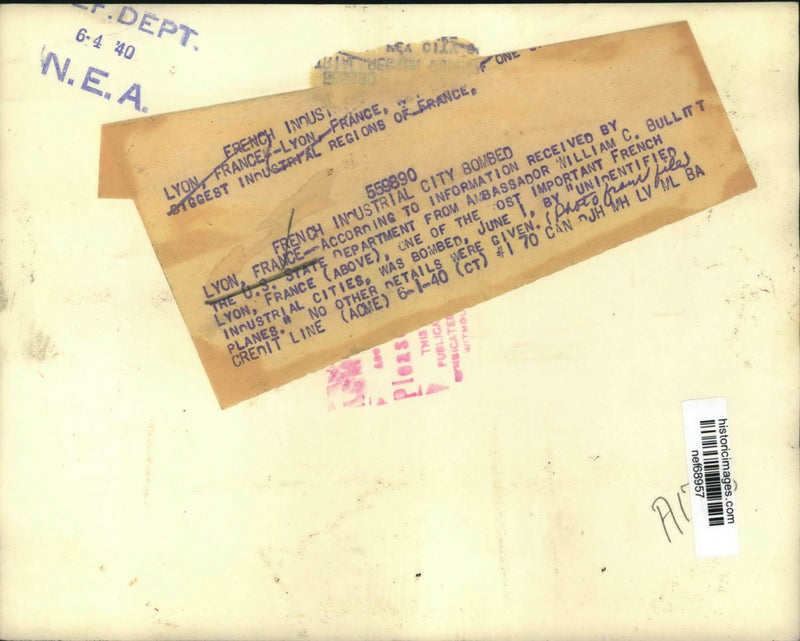 EF. DEPT.
6-4 '40
N.E.A.
NEW CITY
559890
FRENCH INDUST
LYON, FRANCE—LYON, FRANCE, OF ONE
BIGGEST INDUSTRIAL REGIONS OF FRANCE.
559890
FRENCH INDUSTRIAL CITY BOMBED
LYON, FRANCE—ACCORDING TO INFORMATION RECEIVED BY
THE U.S. STATE DEPARTMENT FROM AMBASSADOR WILLIAM C. BULLITT
LYON, FRANCE (ABOVE), ONE OF THE MOST IMPORTANT FRENCH
INDUSTRIAL CITIES, WAS BOMBED, JUNE 1, BY "UNIDENTIFIED
PLANES." NO OTHER DETAILS WERE GIVEN. (photo from files
CREDIT LINE (ACME) 6-1-40 (CT) #1 70 CAN DJH MH LV ML BA
Pleas
THIS
PUBLICA
SYNDICATED
A17
historicimages.com
nef68957